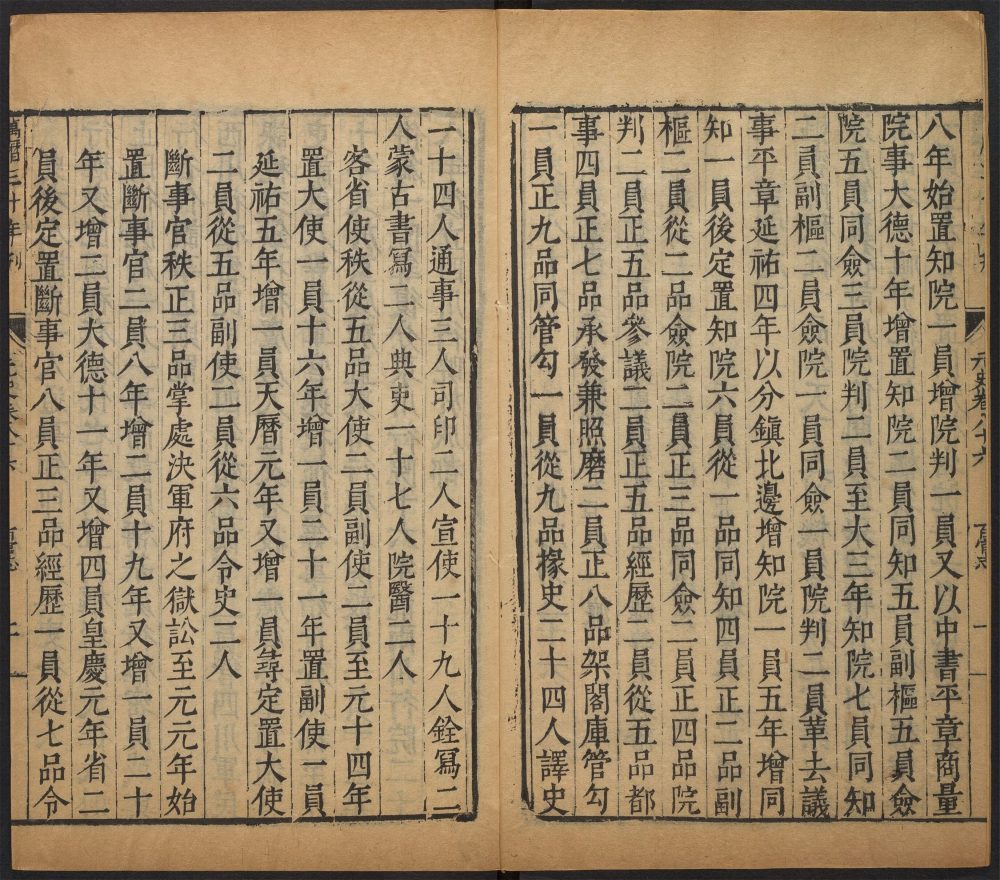 元史卷八十六
百官志
一
八年始置知院一員增院判一員又以中書平章商量
院事大德十年增置知院二員同知五員副樞五員僉
院五員同僉三員院判二員至大三年知院七員同知
二員副樞二員僉院一員同僉一員院判二員革去議
事平章延祐四年以分鎮北邊增知院一員五年增同
知一員後定置知院六員從一品同知四員正二品副
樞二員從二品僉院二員正三品同僉二員正四品院
判二員正五品參議二員正五品經歷二員從五品都
事四員正七品承發兼照磨二員正八品架閣庫管勾
一員正九品同管勾一員從九品掾史二十四人譯史
一十四人通事三人司印二人宣使一十九人銓寫二
人蒙古書寫二人典吏一十七人院醫二人
客省使秩從五品大使二員副使二員至元十四年
置大使一員十六年增一員二十一年置副使一員
延祐五年增一員天曆元年又增一員尋定置大使
二員從五品副使二員從六品令史二人
斷事官秩正三品掌處決軍府之獄訟至元元年始
置斷事官二員八年增二員十九年又增一員二十
年又增二員大德十一年又增四員皇慶元年省二
員後定置斷事官八員正三品經歷一員從七品令
萬曆三十年刊